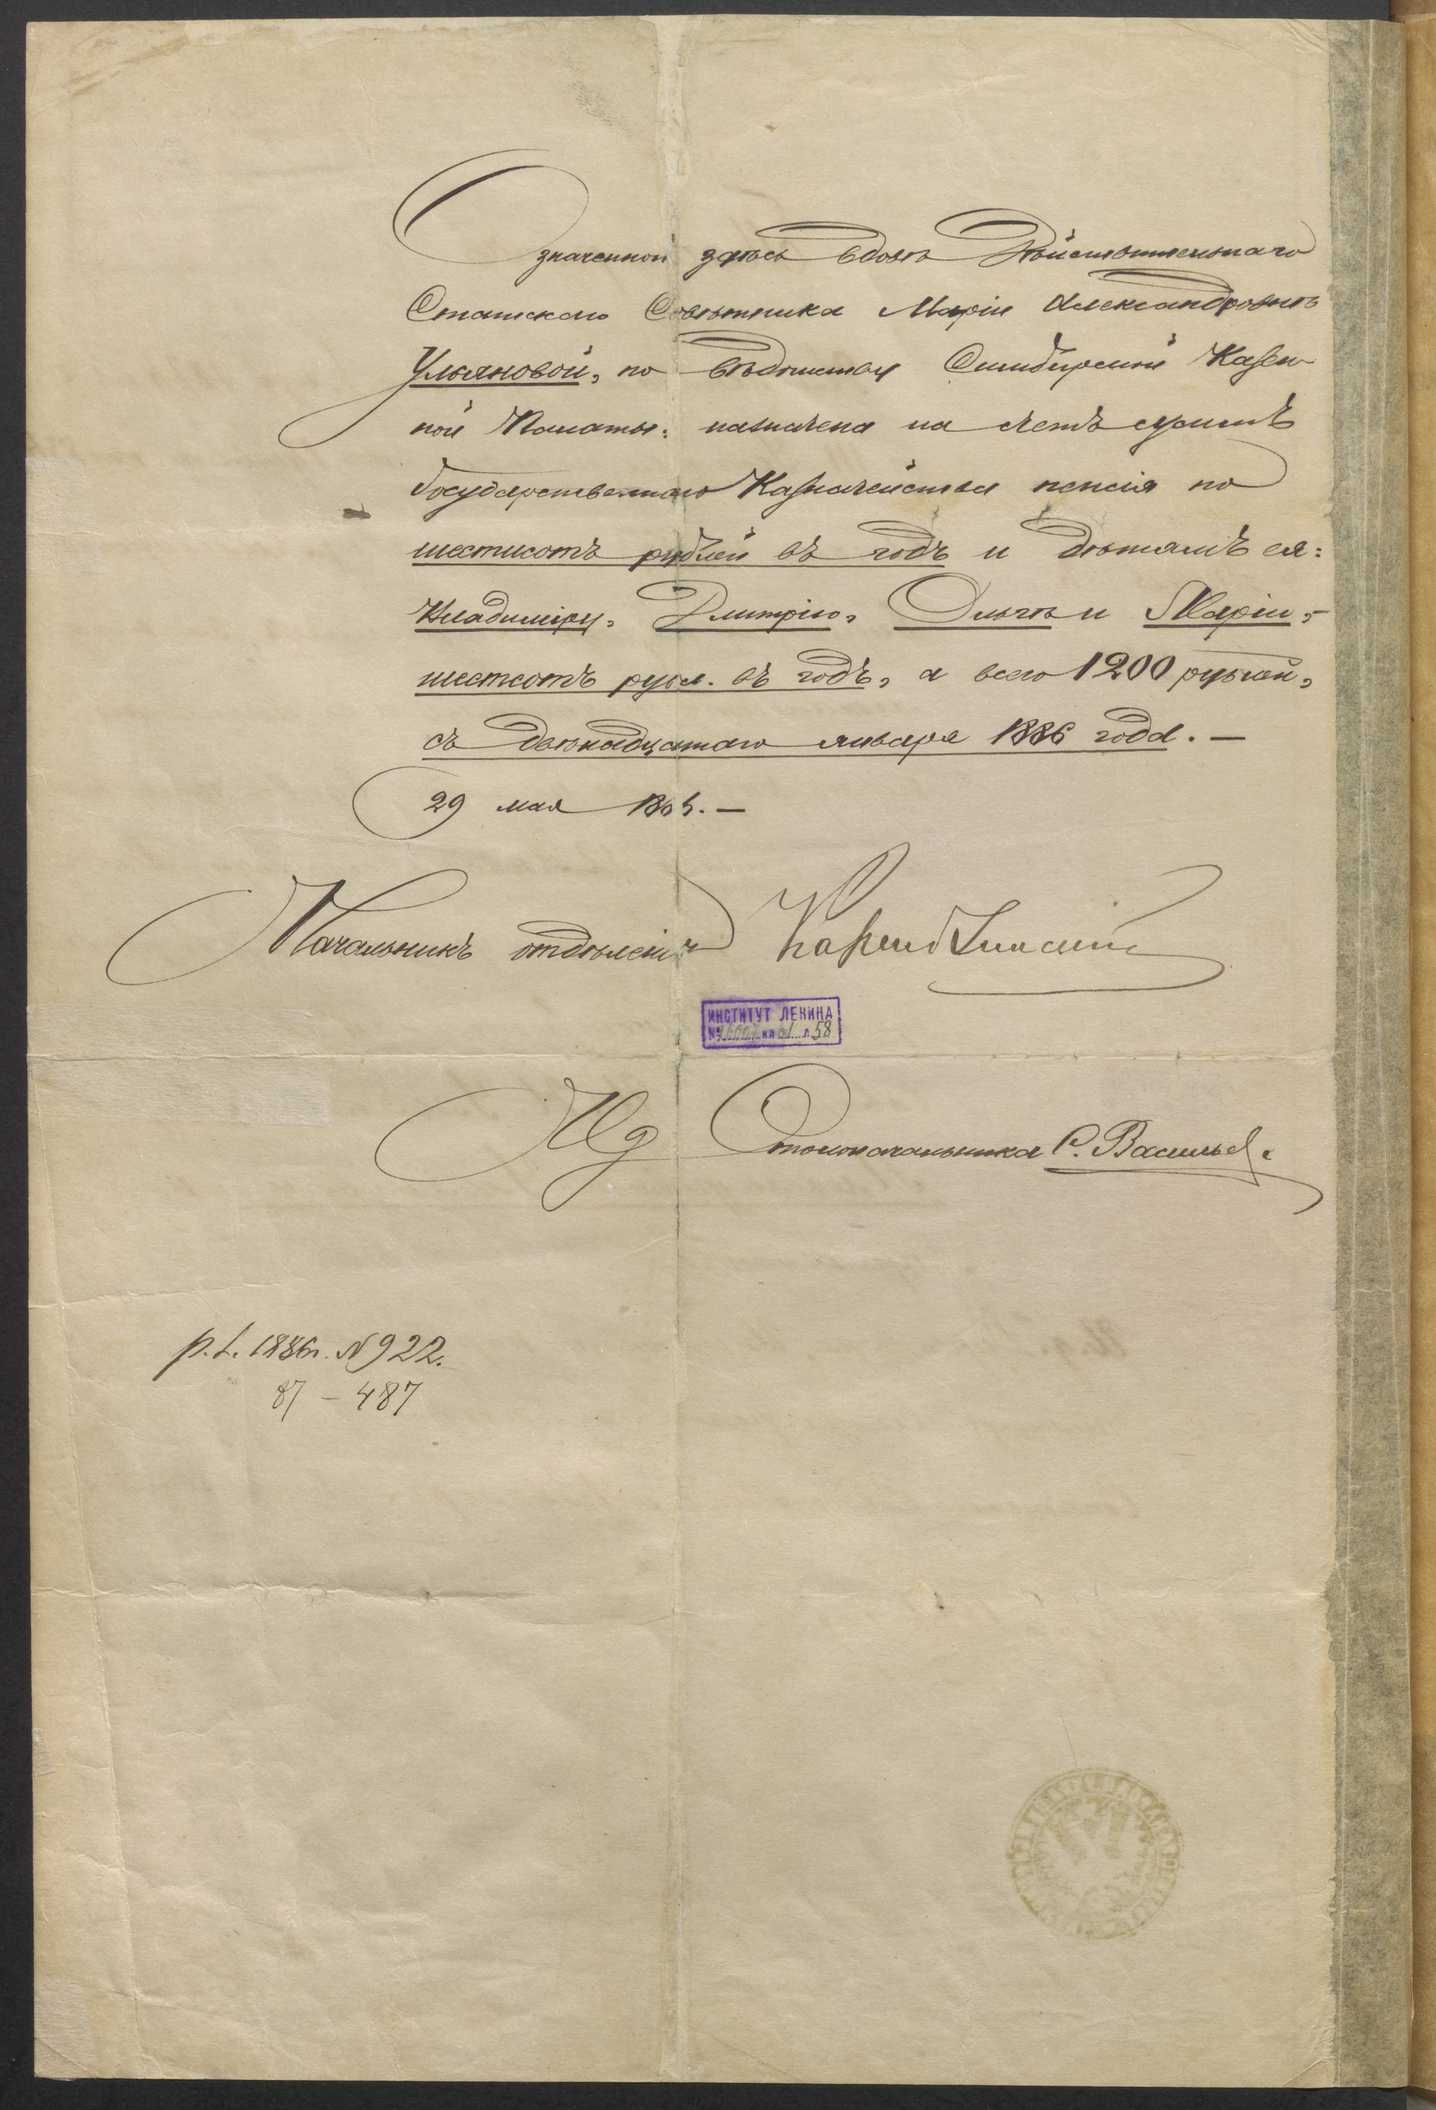 Означенной здѣсь вдовѣ Дѣйствительнаго
Статскаго Совѣтника Маріи Александровнѣ
Ульяновой, по вѣдомству Симбирской Казен
ной Палаты: назначена на счетъ суммъ
Государственнаго Казначейства пенсія по
шестисотъ рублей въ годъ и дѣтямъ ея:
Владиміру, Дмитрію, Ольгѣ и Маріи,-
шестсотъ рубл. въ годъ, а всего 1200 рублей,
съ двѣнадцатаго января 1886 года. —
29 мая
Начальникъ отдѣленія
ИНСТИТУТ ЛЕНИНА
№ кн л 58
Ид Столоначальника С. Васильев.
р. 1886г. № 922.
87 – 487